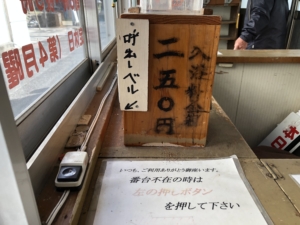 入浴料金
二五〇円
呼出しベル
↙
いつも、ご利用ありがとう御座います。
番台不在の時は
左の押しボタン
を押して下さい
(第4月曜